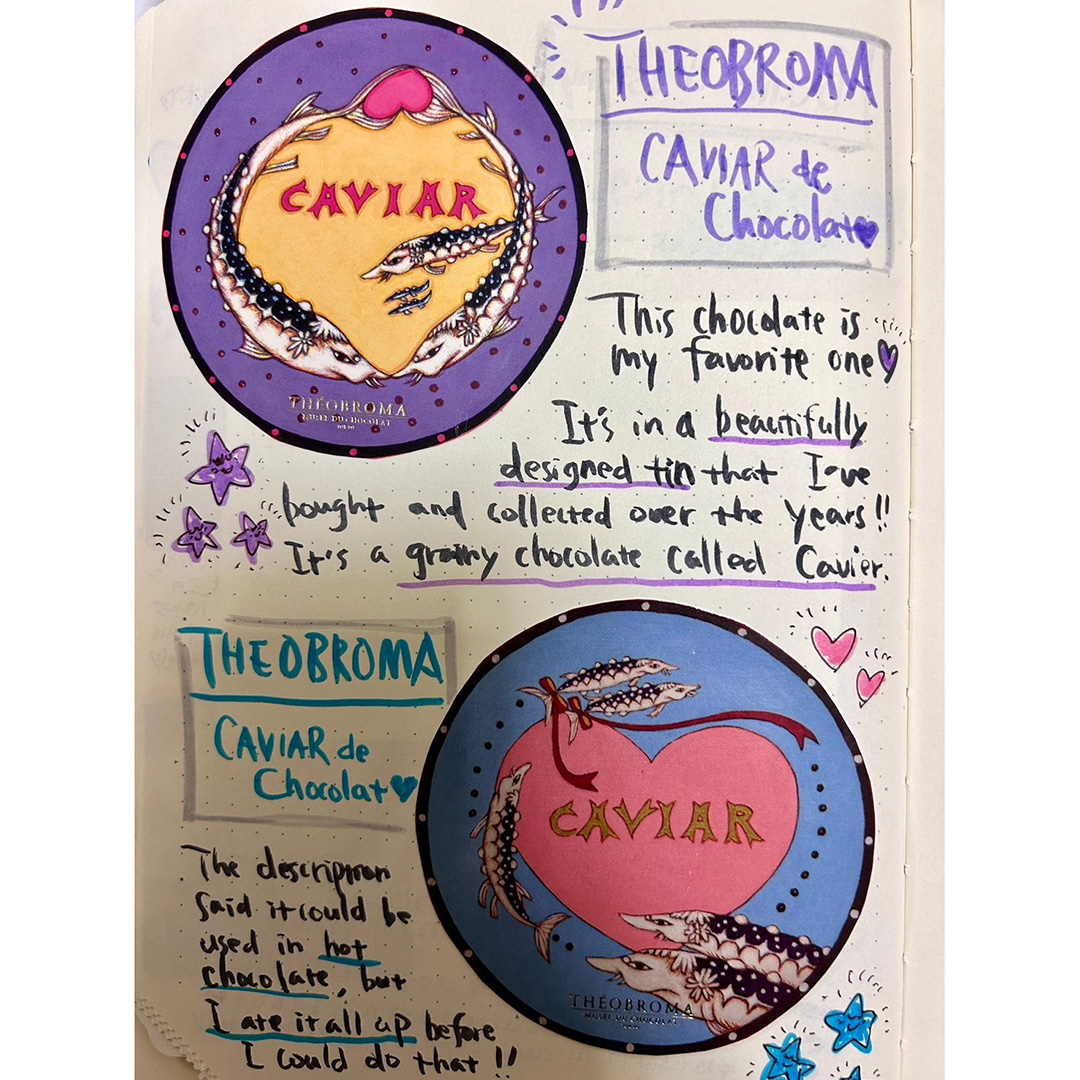 THEOBROMA
CAVIAR de
Chocolat
CAVIAR
THÉOBROMA
MUSÉE DU CHOCOLAT
This chocolate is
my favorite one
It's in a beautifully
designed tin that I've
bought and collected over the years!!
It's a grainy chocolate called Cavier.
THEOBROMA
CAVIAR de
Chocolat
CAVIAR
THÉOBROMA
MUSÉE DU CHOCOLAT
The description
said it could be
used in hot
chocolate, but
I ate it all up before
I could do that!!